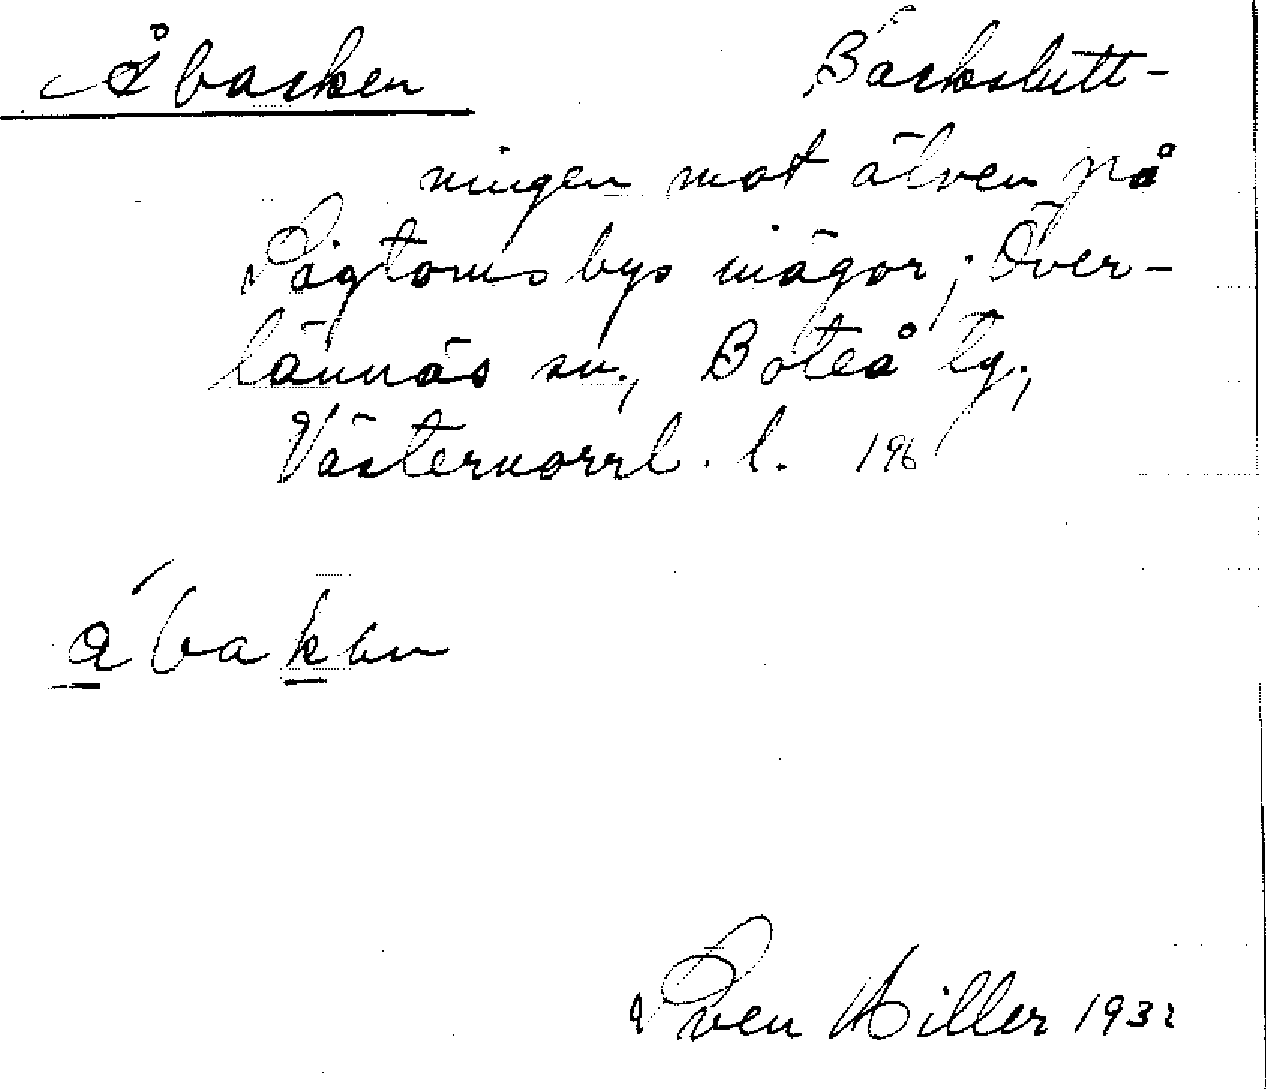 Åbacken
Backslutt-
ningen mot älven på
Sågtoms bys mägor; Över-
lännäs sn., Boteå tg.,
Västernorrl. l. 196
åbakan
Sven Hiller 1932